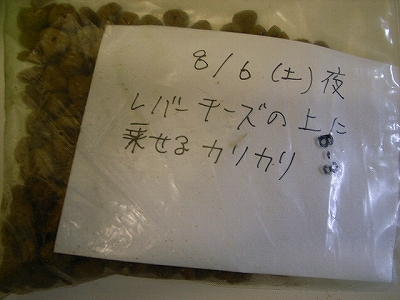 8/6 (土) 夜
レバーチーズの上に
乗せるカリカリ
B-3